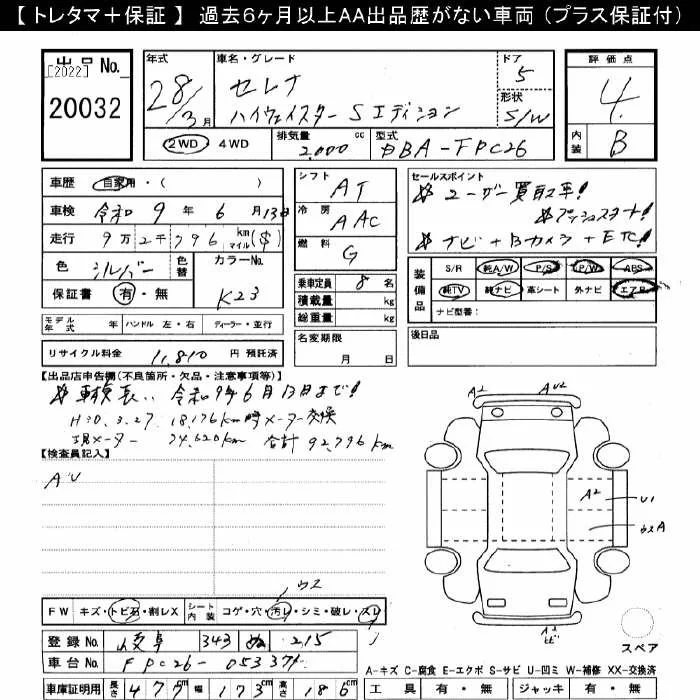 【 トレタマ＋保証 】 過去6ヶ月以上AA出品歴がない車両（プラス保証付）
出品 No.
[2022]
20032
年式
28/3月
車名・グレード
セレナ
ハイウェイスター Sエディション
ドア
5
形状
S/W
2WD ・ 4WD
排気量 cc
2.000
型式
DBA-FPC26
評価点
4
内装
B
車歴 自家用・( )
車検 令和 9 年 6 月 13日
走行 9万2千796 km マイル ($)
色 シルバー
色替
カラーNo.
K23
保証書 有・無
モデル年式 年 ハンドル 左・右 ディーラー・並行
リサイクル料金 11,810 円 預託済
シフト AT
冷房 AAC
燃料 G
乗車定員 8 名
積載量 kg
総重量 kg
名変期限
月 日
セールスポイント
※ ユーザー買取車!
※ プッシュスタート!
※ ナビ+Bカメラ+ETC!
装備品
S/R 純A/W P/S P/W ABS
純TV 純ナビ 革シート 外ナビ エアB
ナビ型番:
後日品
【出品店申告欄(不良箇所・欠品・注意事項等)】
※ 車検長い 令和9年6月13日まで!
H30.3.27 18.176km時メーター交換
現メーター 74.620km 合計 92,796km
【検査員記入】
AU
A2
AU2
A2
U1
ウスA
ウス
FW キズ・トビ石・割レX シート内装 コゲ・穴・汚レ・シミ・破レ・スレ
登録 No. 岐阜 343 ぬ 215
車台 No. FPC26-053374
車庫証明用 長さ 477 幅 173 高さ 186
A2
スペア
A-キズ C-腐食 E-エクボ S-サビ U-凹ミ W-補修 XX-交換済
工具 有・無 ジャッキ 有・無